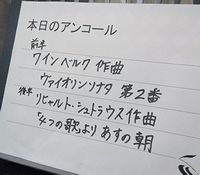 本日のアンコール
前半
ワインベルク 作曲
ヴァイオリンソナタ 第2番
後半
リヒャルト・シュトラウス作曲
「4つの歌」より あすの朝